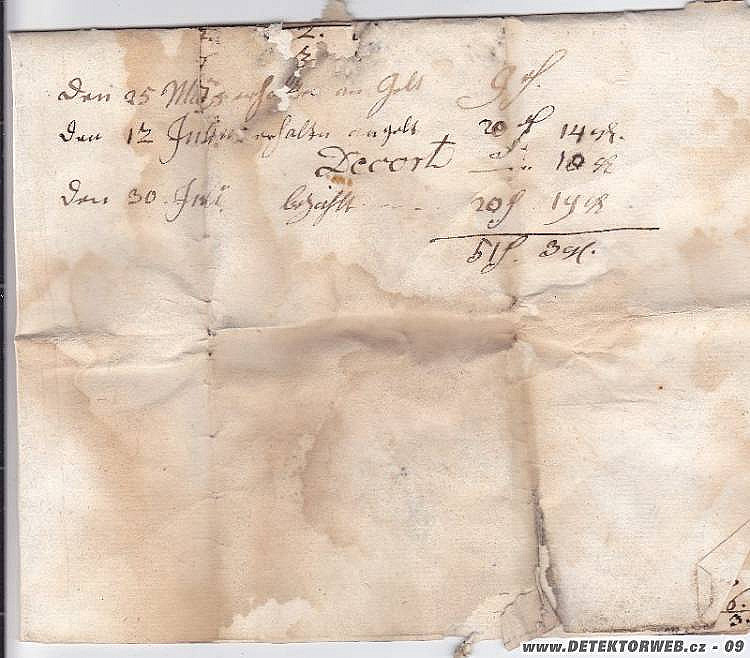 2.
3
den 25 März erhalten an Gelt 9 f.
den 12 Julius erhalten an gelt 20 f 14 gl.
Decort — 10 gl
den 30. Juli bezahlt — 20 f. 19 gl
51 f. 3 gl.
6.
3.
www.DETEKTORWEB.cz - 09